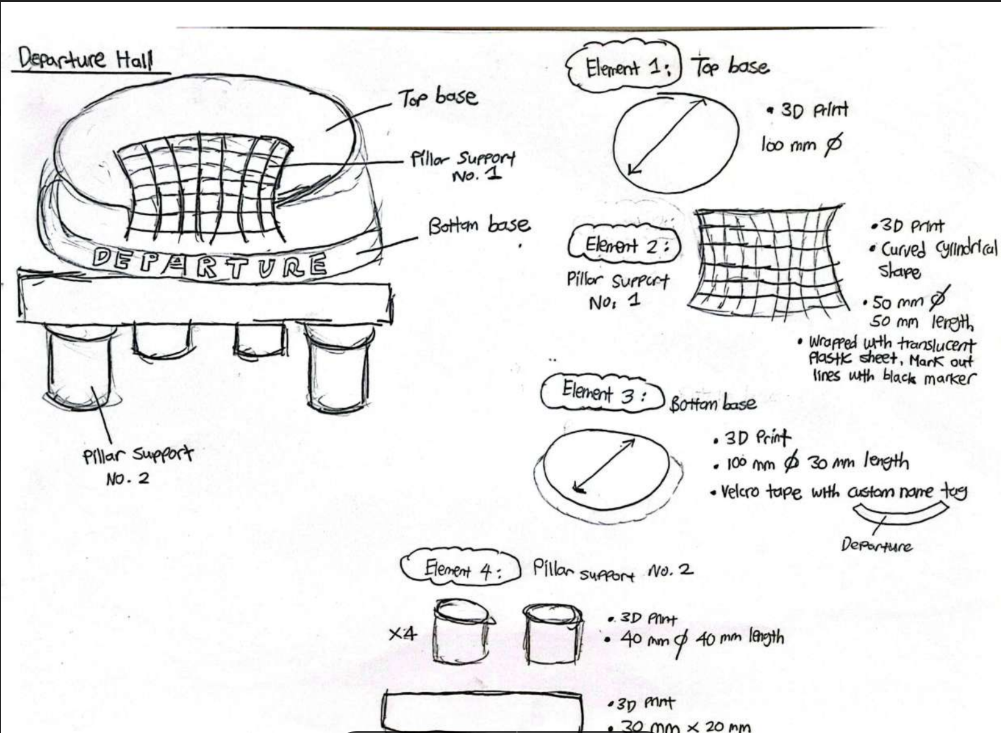 Departure Hall
Top base
Pillar Support
No. 1
Bottom base
DEPARTURE
Pillar Support
No. 2
Element 1:
Top base
• 3D Print
100 mm Ø
Element 2:
Pillar Support
No. 1
• 3D Print
• Curved Cylindrical
Shape
• 50 mm Ø
50 mm length
• Wrapped with translucent
Plastic sheet, Mark out
lines with black marker
Element 3:
Bottom base
• 3D Print
• 100 mm Ø 30 mm length
• Velcro tape with custom name tag
Departure
Element 4:
Pillar support No. 2
x4
• 3D Print
• 40 mm Ø 40 mm length
• 3D Print
• 30 mm x 20 mm